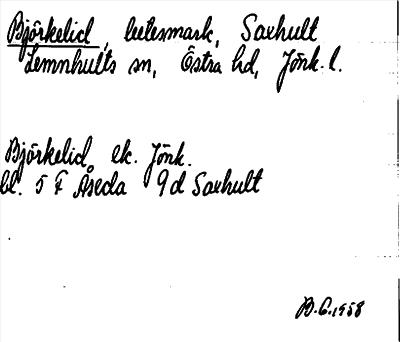 Björkelid, betesmark, Saxhult
Lemnhults sn, Östra hd, Jönk. l.
Björkelid, ek. Jönk.
bl. 5 F Åseda 9d Saxhult
B.G. 1958